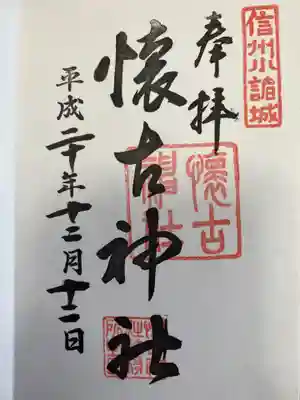 信州小諸城
奉拝
懐古
神社
懐古神社
平成二十年十二月十二日